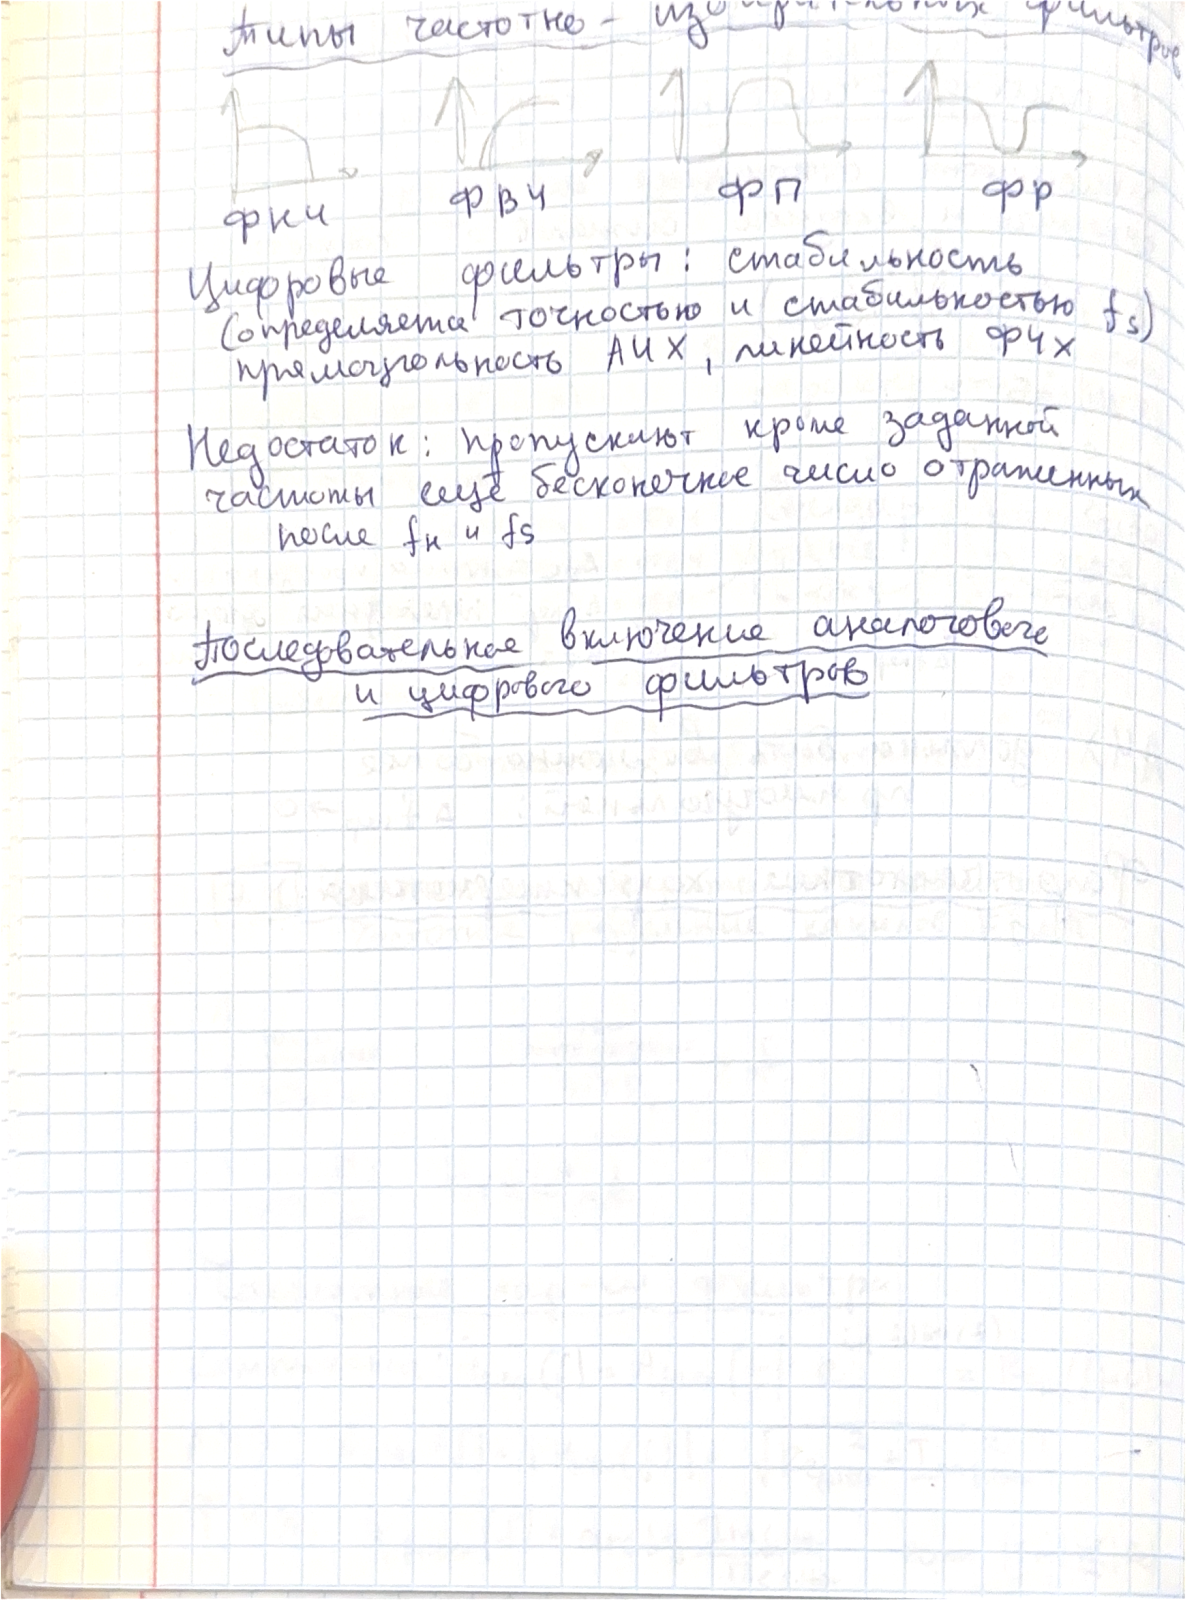 Типы частотно - избирательных фильтров
ФНЧ ФВЧ ФП ФР
Цифровые фильтры: стабильность
(определяется точностью и стабильностью fs)
прямоугольность АЧХ, линейность ФЧХ
Недостаток: пропускают кроме заданной
частоты ещё бесконечное число отраженных
после fн и fs
Последовательное включение аналогового
и цифрового фильтров